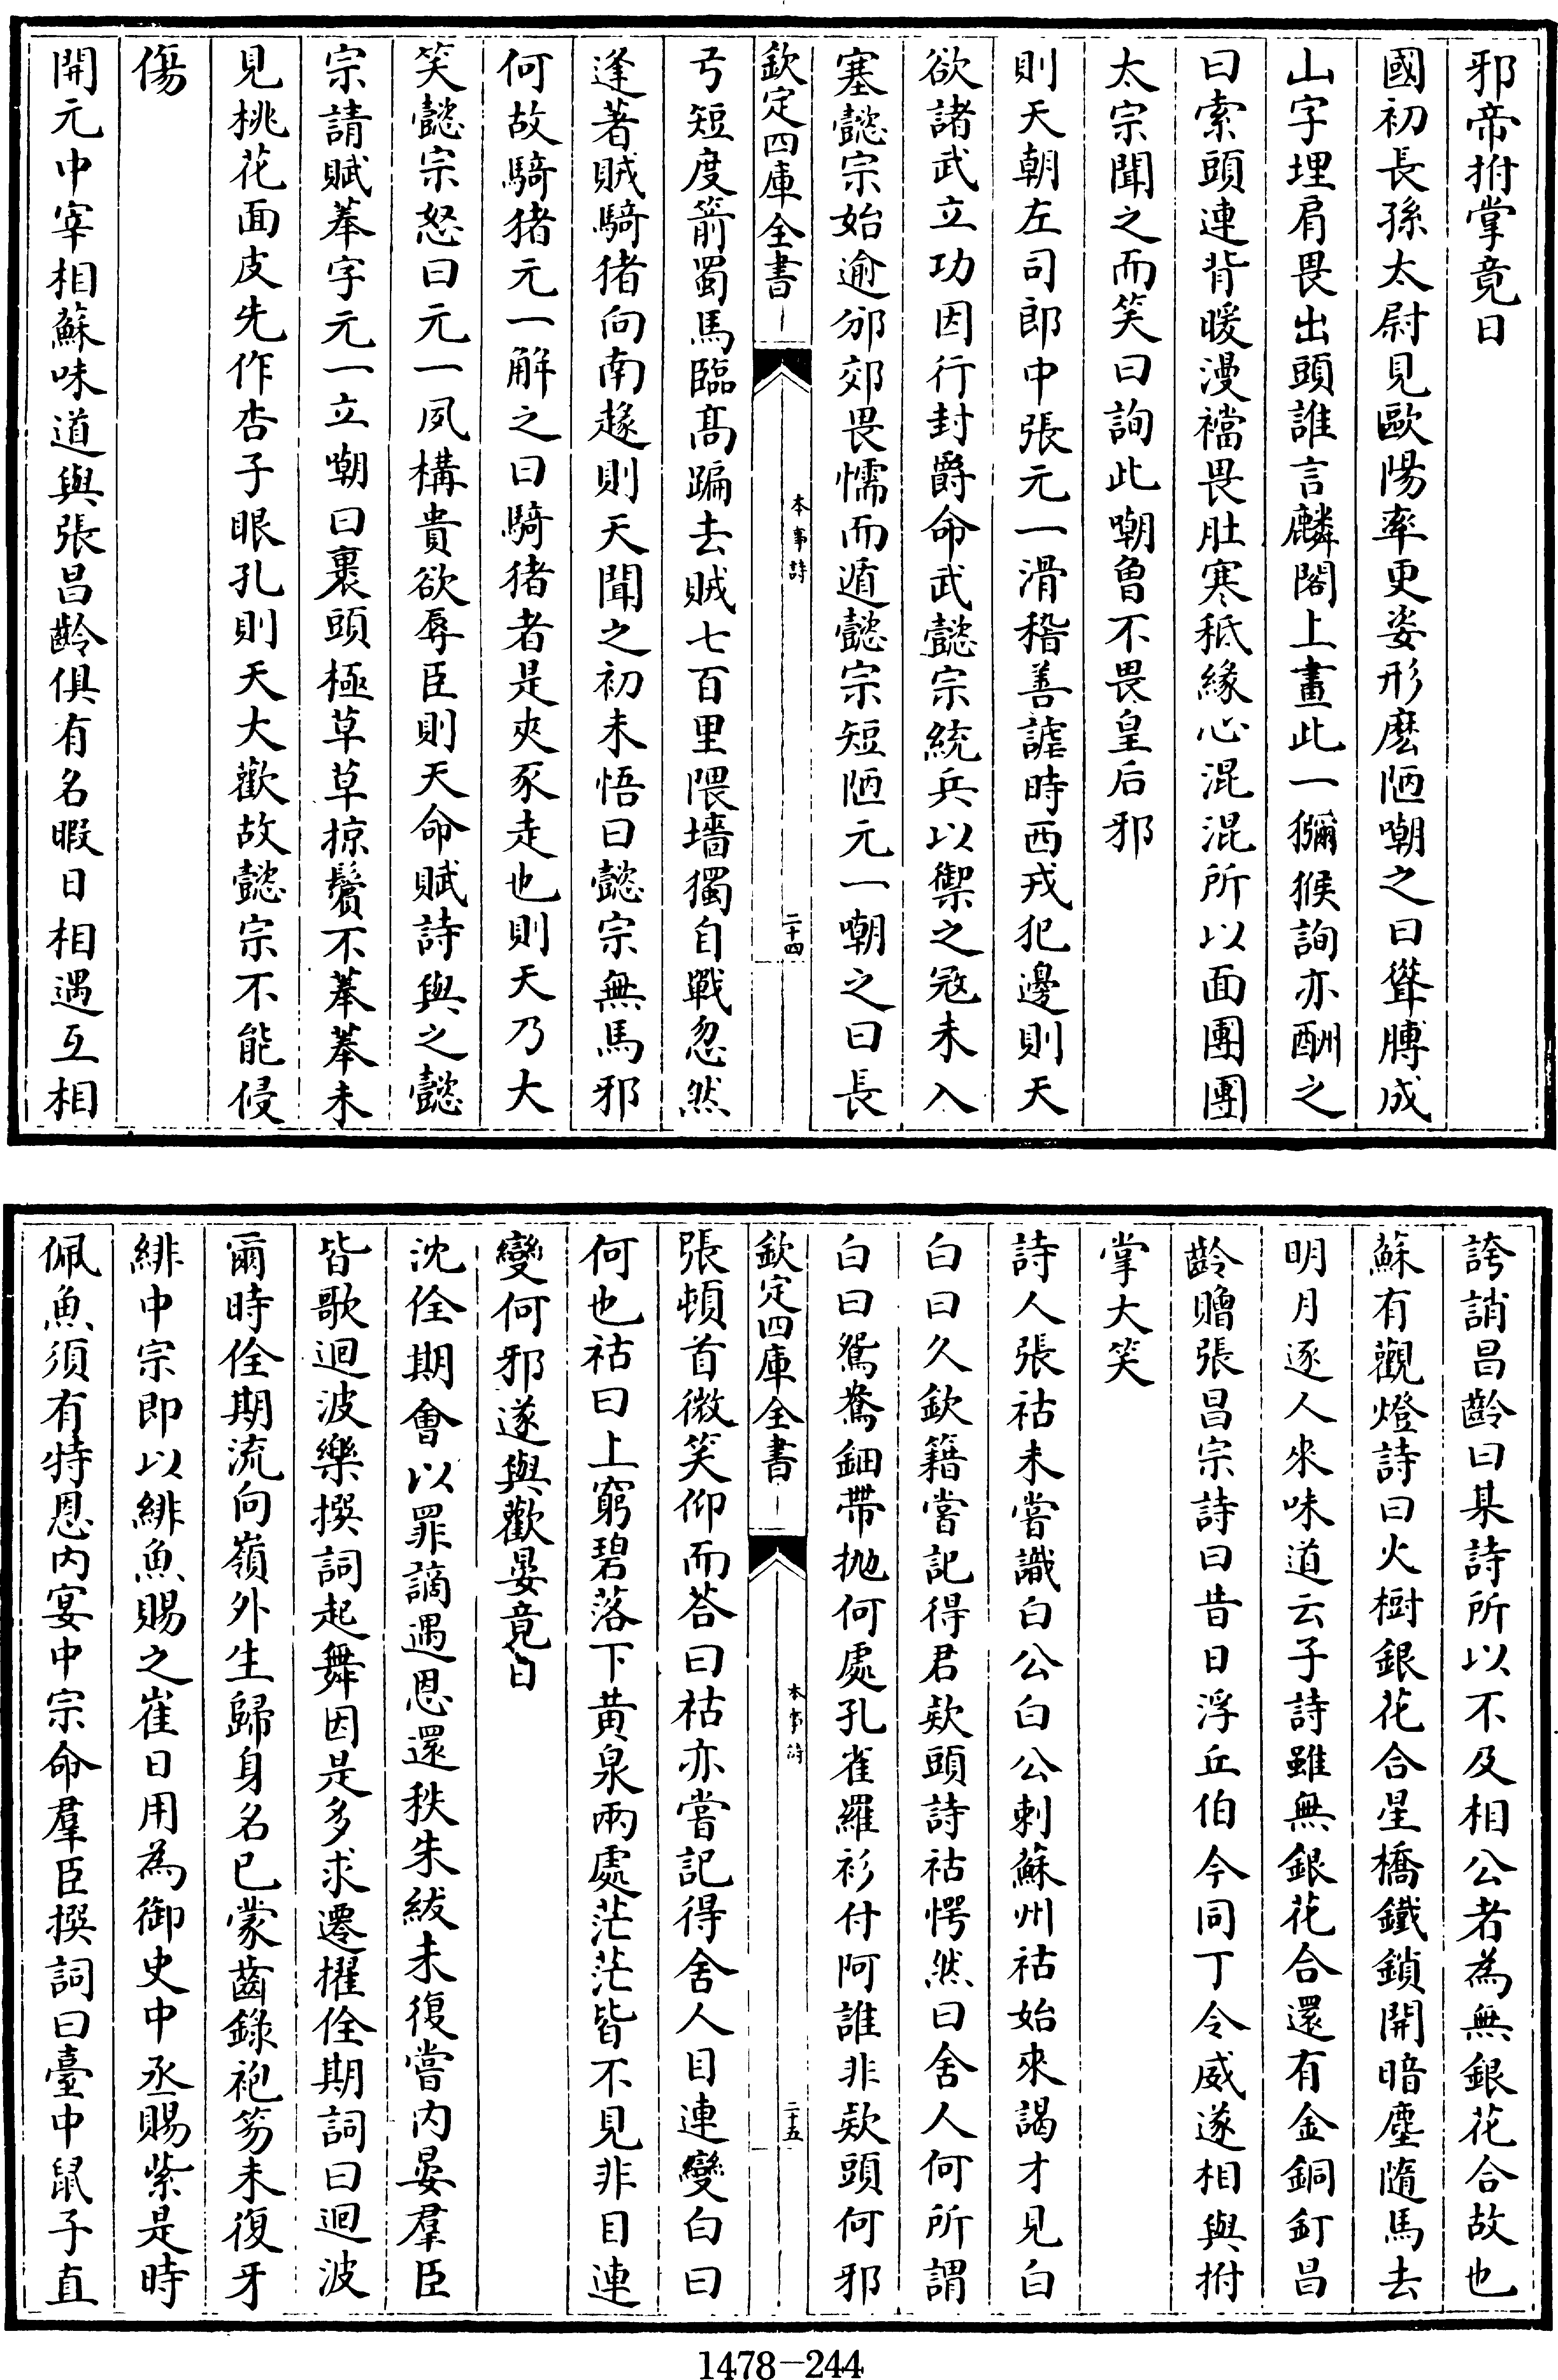 邪帝拊掌竟日
國初長孫太尉見歐陽率更姿形麽陋嘲之曰聳膊成
山字埋肩畏出頭誰言麟閣上畫此一獼猴詢亦酬之
曰索頭連背暖漫襠畏肚寒秪緣心混混所以面團團
太宗聞之而笑曰詢此嘲曾不畏皇后邪
則天朝左司郎中張元一滑稽善謔時西戎犯邊則天
欲諸武立功因行封爵命武懿宗統兵以禦之寇未入
塞懿宗始逾邠郊畏懦而遁懿宗短陋元一嘲之曰長
欽定四庫全書
本事詩
二十四
弓短度箭蜀馬臨髙蹁去賊七百里隈墻獨自戰忽然
逢著賊騎猪向南趍則天聞之初未悟曰懿宗無馬邪
何故騎猪元一解之曰騎猪者是夾豕走也則天乃大
笑懿宗怒曰元一夙構貴欲辱臣則天命賦詩與之懿
宗請賦菶字元一立嘲曰裹頭極草草掠鬢不菶菶未
見桃花面皮先作杏子眼孔則天大歡故懿宗不能侵
傷
開元中宰相蘇味道與張昌齡俱有名暇日相遇互相
誇誚昌齡曰某詩所以不及相公者為無銀花合故也
蘇有觀燈詩曰火樹銀花合星橋鐵鎖開暗塵隨馬去
明月逐人來味道云子詩雖無銀花合還有金銅釘昌
齡贈張昌宗詩曰昔日浮丘伯今同丁令威遂相與拊
掌大笑
詩人張祜未嘗識白公白公刺蘇州祜始來謁才見白
白曰久欽籍嘗記得君欵頭詩祜愕然曰舍人何所謂
白曰鴛鴦鈿帶抛何處孔雀羅衫付阿誰非欵頭何邪
欽定四庫全書
本事詩
二十五
張頓首微笑仰而荅曰祜亦嘗記得舍人目連變白曰
何也祜曰上窮碧落下黄泉兩處茫茫皆不見非目連
變何邪遂與歡宴竟日
沈佺期會以罪謫遇恩還秩朱紱未復嘗内宴羣臣
皆歌迴波樂撰詞起舞因是多求遷擢佺期詞曰迴波
爾時佺期流向嶺外生歸身名已蒙齒錄袍笏未復牙
緋中宗即以緋魚賜之崔日用為御史中丞賜紫是時
佩魚須有特恩内宴中宗命羣臣撰詞曰臺中鼠子直
1478-244